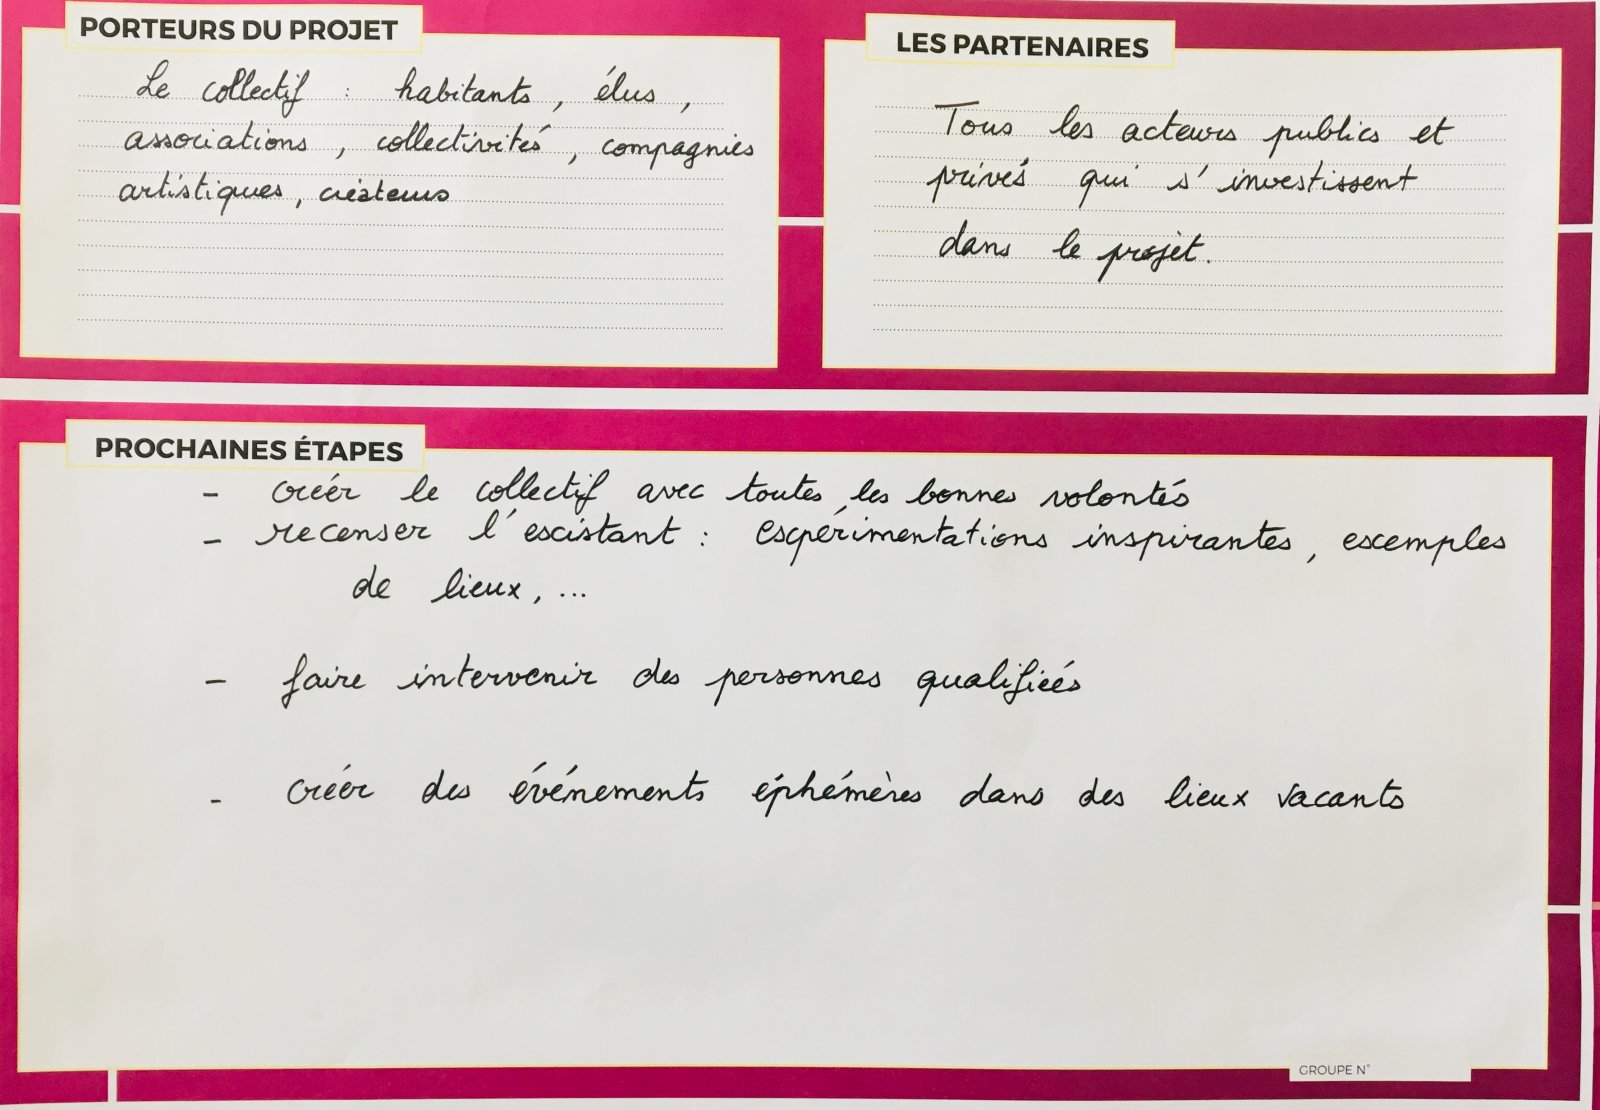 PORTEURS DU PROJET
Le collectif : habitants, élus,
associations, collectivités, compagnies
artistiques, créateurs
LES PARTENAIRES
Tous les acteurs publics et
privés qui s'investissent
dans le projet.
PROCHAINES ÉTAPES
- créer le collectif avec toutes les bonnes volontés
- recenser l'existant : expérimentations inspirantes, exemples
de lieux, ...
- faire intervenir des personnes qualifiées
- créer des événements éphémères dans des lieux vacants
GROUPE N°